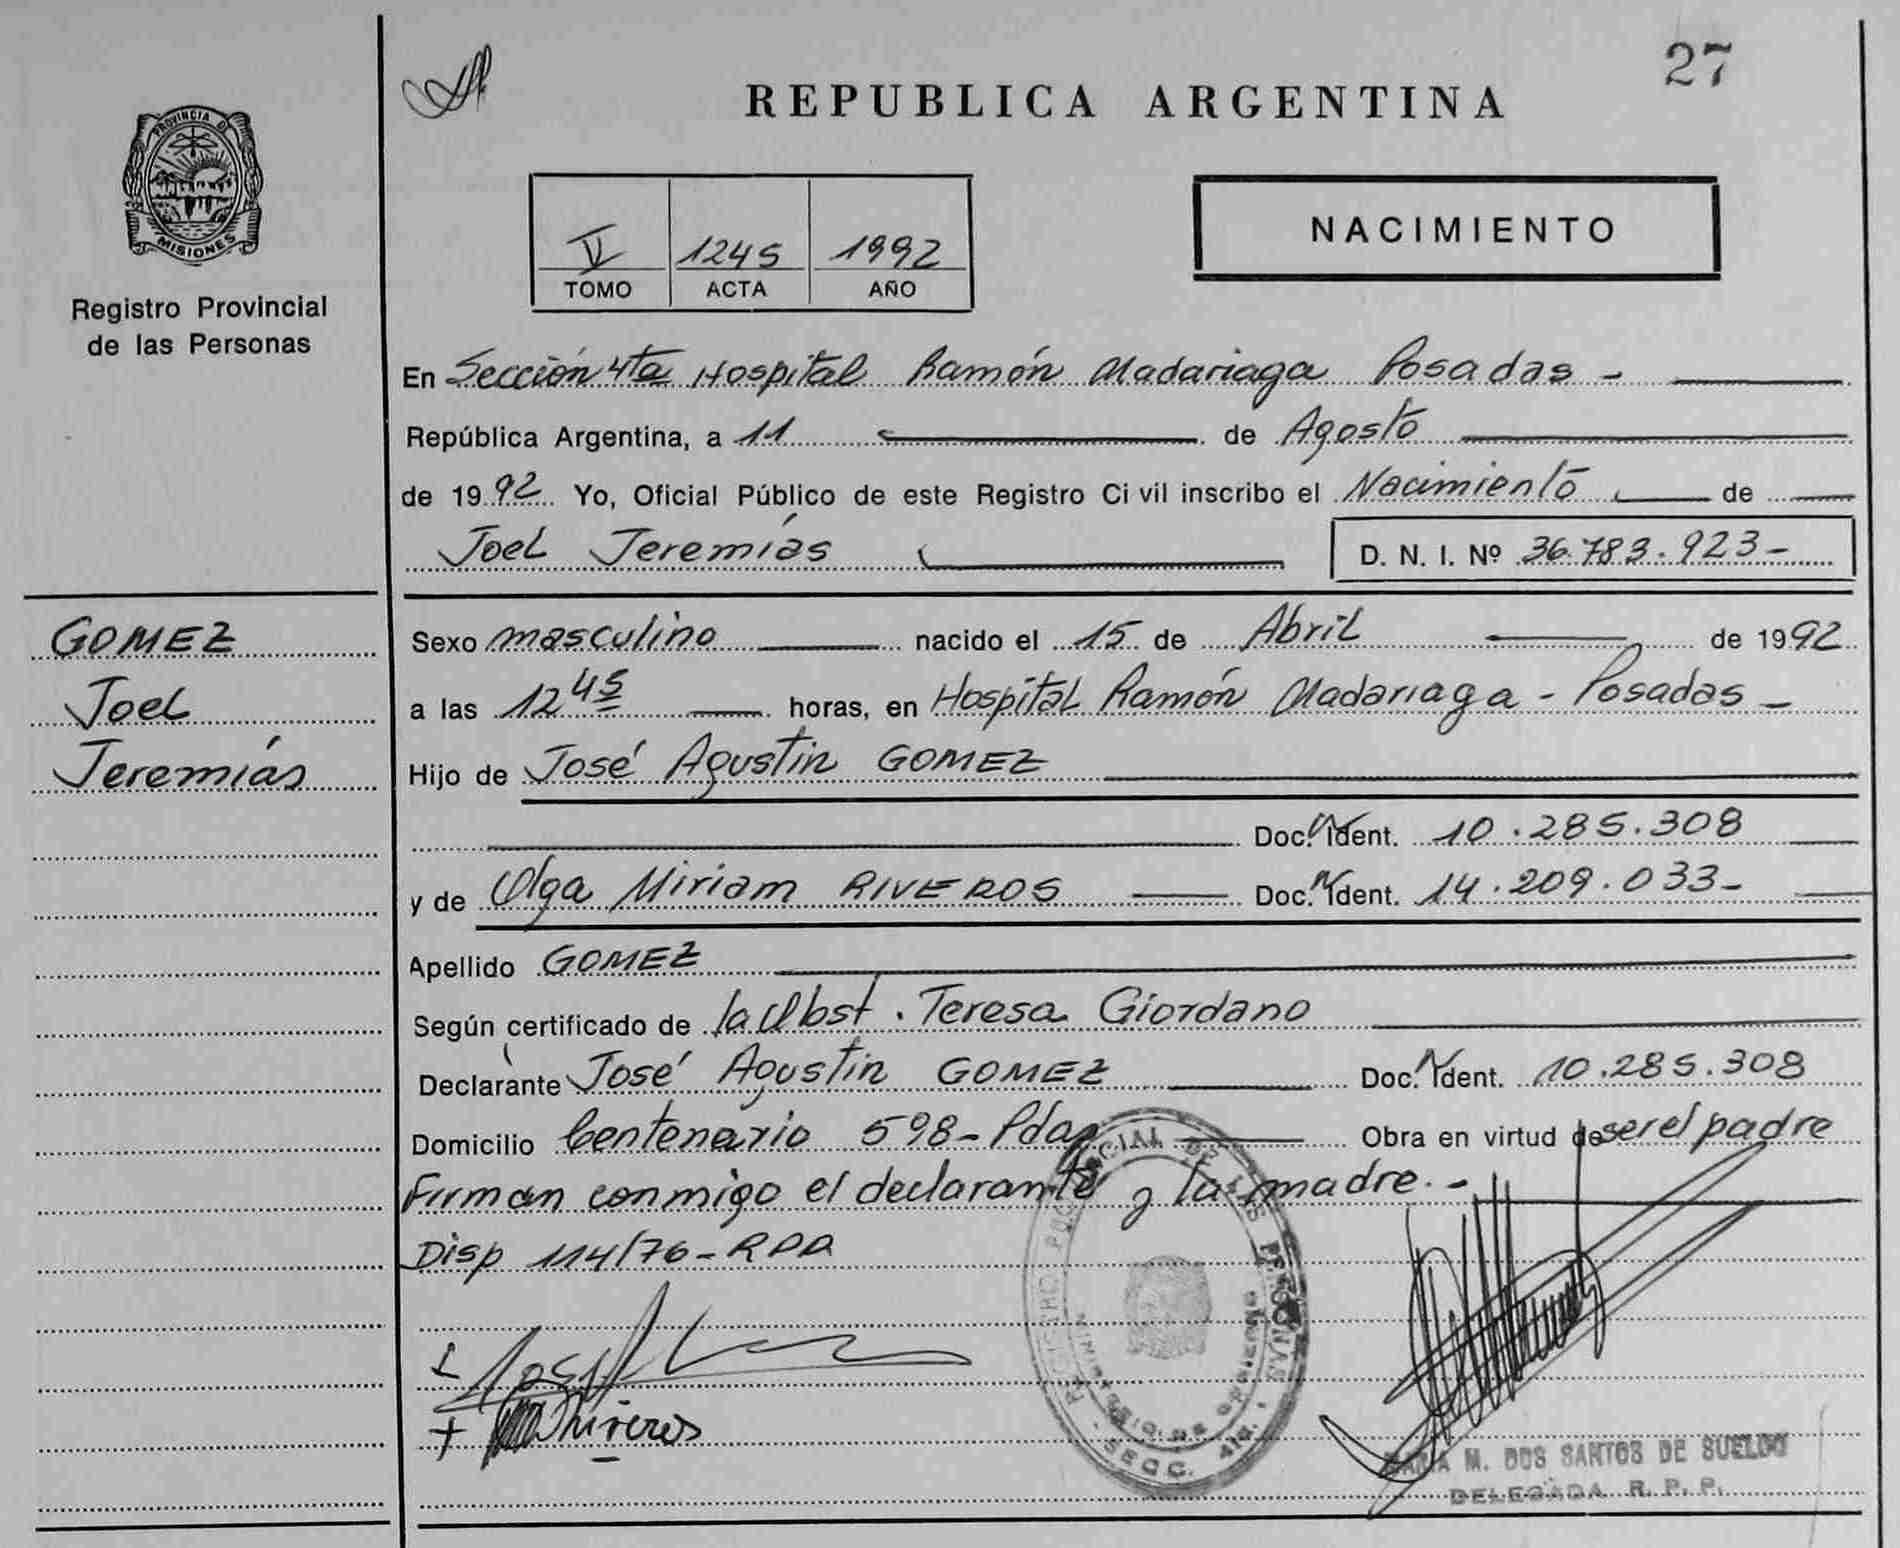 27
REPUBLICA ARGENTINA
PROVINCIA DE
MISIONES
Registro Provincial
de las Personas
V 1245 1992
TOMO ACTA AÑO
NACIMIENTO
En Sección 4ta Hospital Ramón Madariaga Posadas -
República Argentina, a 11 de Agosto
de 1992 Yo, Oficial Público de este Registro Ci vil inscribo el Nacimiento de
Joel Jeremías D. N. I. Nº 36.783.923-
GOMEZ
Joel
Jeremías
Sexo masculino nacido el 15 de Abril de 1992
a las 12 45 horas, en Hospital Ramón Madariaga - Posadas -
Hijo de José Agustin GOMEZ
Doc. N Ident. 10.285.308
y de Olga Miriam RIVEROS Doc. N Ident. 14.209.033-
Apellido GOMEZ
Según certificado de la Obst. Teresa Giordano
Declarante José Agustin GOMEZ Doc. N Ident. 10.285.308
Domicilio Centenario 598- Pdas Obra en virtud de ser el padre
Firman conmigo el declarante y la madre.-
Disp 114/76-RPP
Riveros
REGISTRO PROVINCIAL DE LAS PERSONAS
SECC. 4ta.
M. DOS SANTOS DE SUELDO
DELEGADA R. P. P.